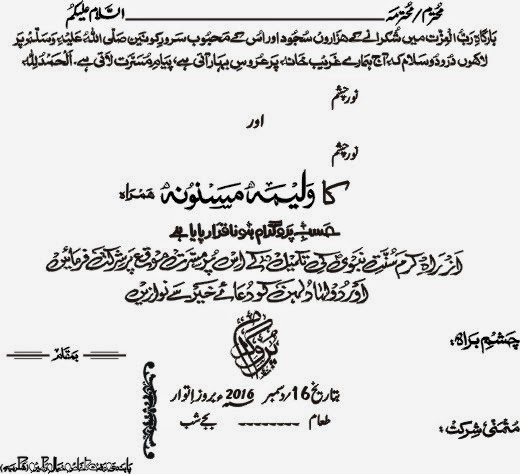 محترم / محترمہ ________________ السلام علیکم
بارگاہِ ربُّ العزت میں شکرانے کے ہزاروں سجود اور اُس کے محبوب سرورِ کونین صلی اللہ علیہ وسلم پر
لاکھوں درود و سلام کہ آج ہمارے غریب خانہ پر عروسِ بہار آتی ہے، پیامِ مسرت لاتی ہے۔ الحمدللہ
نورِ چشم
اور
نورِ چشم
کا ولیمہ مسنونہ ہمراہ
حسبِ پروگرام ہونا قرار پایا ہے
از راہِ کرم سُنتِ نبویؐ کی تکمیل کے اس پُرمسرت موقع پر شرکت فرمائیں
اور دولہا دلہن کو دُعائے خیر سے نوازیں
چشم براہ:
بمقام
پروگرام
بتاریخ 16 دسمبر 2016ء بروز اتوار
طعام -------- بجے شب
متمنی شرکت: